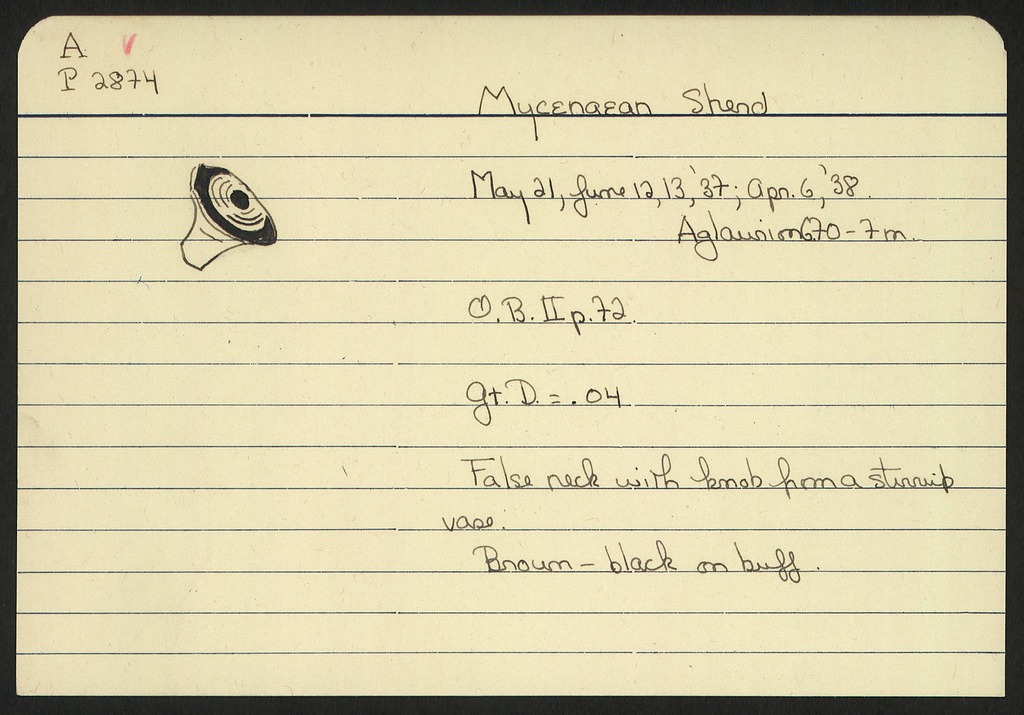 A
P 2874
Mycenaean Sherd
May 21, June 12, 13, '37; Apr. 6, '38.
Aglaurion 6.70 - 7 m.
O.B. II p. 72.
Gt. D. = .04
False neck with knob from a stirrup
vase.
Brown - black on buff.